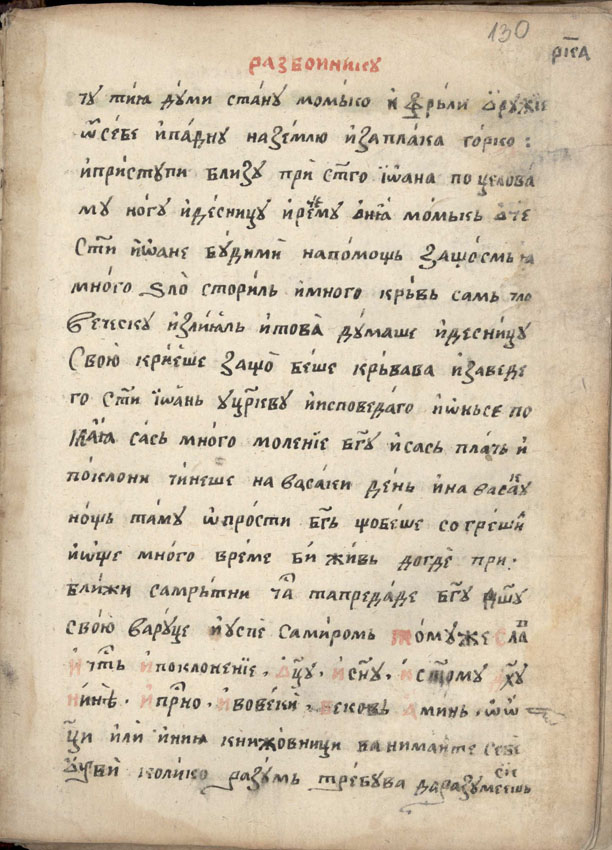 130
рк҃а
разбоинику
ту тиꙗ думи стану момъко и фръли ѻружїе
ѿ себе и паднꙋ на землю и заплака горко :
и приступи близу при ст҃го їѡана поцелова
му ногу и десницу и рече му момъкь ѻтче
ст҃и иѡане буди ми на помощь защо смь ꙗ
много ѕло сториль и много крьвь самь чло
веческу излиꙗль и това думаше и десницу
свою крїеше защо беше крьвава и заведе
го ст҃и їѡань у цр҃кву и исповеда го и ѡнь се по
каꙗ сась много моленїе бг҃у и сась плачь и
поклони чинеше на васаки день и на васаку
нощь та му ѡпрости бг҃ь що беше согрешиль
и ѡще много време би живь догде при
ближи самрьтни ча҃ та предаде бг҃у дш҃у
свою ва руце и успе са миромь ѥмуже слава
и чть҃ и поклоненїе, ѻц҃у, и сн҃у, и ст҃ому дх҃у
нинѣ, и прн҃о, и во веки, вековь аминь, ѡѡ
ци или инии книжовници ванимаите себе
колико разумь требува да разумеешь сїе